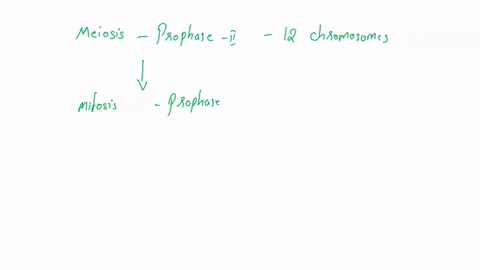 Meiosis - Prophase - II - 12 chromosomes
Mitosis - Prophase